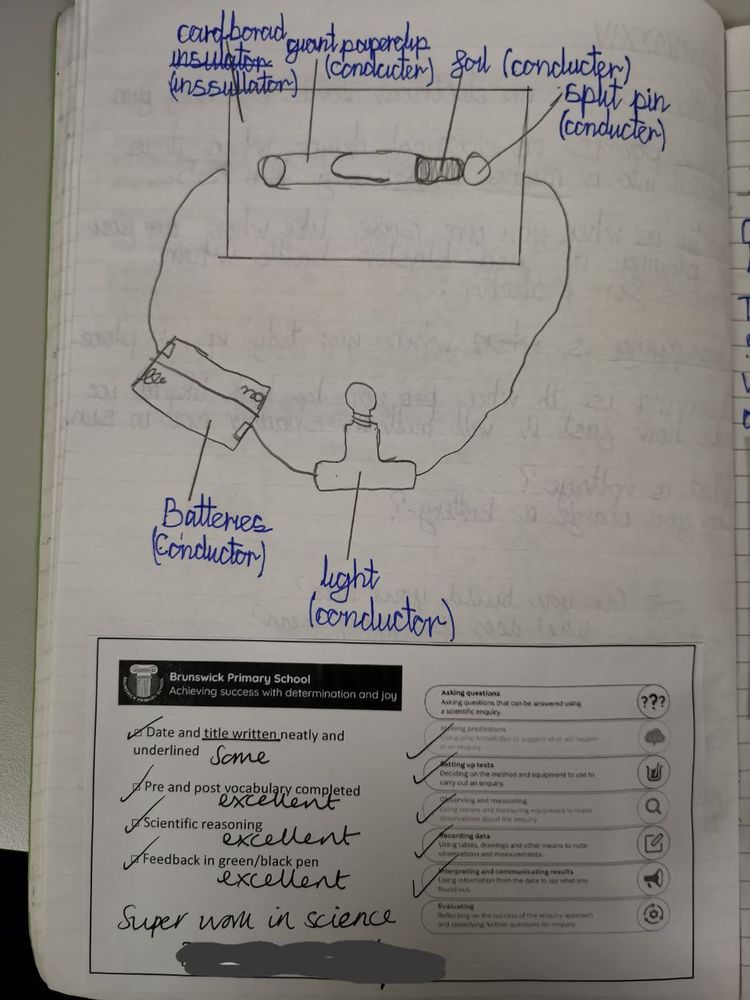 cardborad
insulator
(inssullator)
giant paperclip
(conducter)
foil (conducter)
split pin
(conducter)
Batteries
(Conductor)
light
(conductor)
Brunswick Primary School
Achieving success with determination and joy
BRUNSWICK PRIMARY SCHOOL
Date and title written neatly and
underlined Some
Pre and post vocabulary completed
excellent
Scientific reasoning
excellent
Feedback in green/black pen
excellent
Super work in science
Asking questions
Asking questions that can be answered using
a scientific enquiry.
???
Making predictions
Using prior knowledge to suggest what will happen
in an enquiry.
Setting up tests
Deciding on the method and equipment to use to
carry out an enquiry.
Observing and measuring
Using senses and measuring equipment to make
observations about the enquiry.
Recording data
Using tables, drawings and other means to note
observations and measurements.
Interpreting and communicating results
Using information from the data to say what you
found out.
Evaluating
Reflecting on the success of the enquiry approach
and identifying further questions for enquiry.